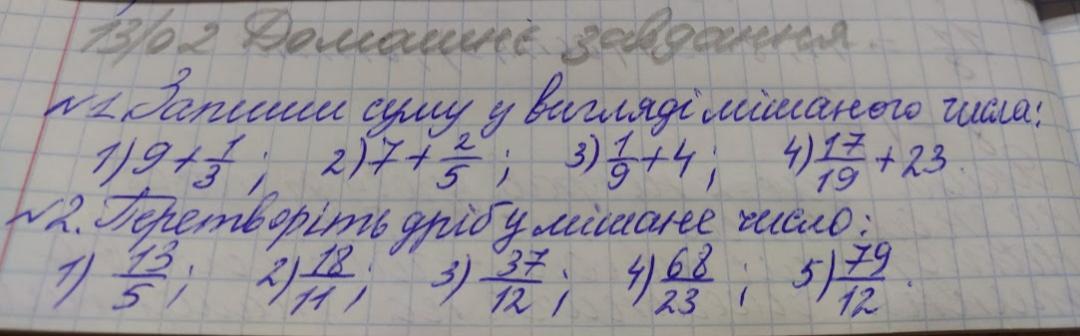 13/02 Домашнє завдання.
№1. Запиши суму у вигляді мішаного числа:
1) 9 + 1/3 ; 2) 7 + 2/5 ; 3) 1/9 + 4 ; 4) 17/19 + 23.
№2. Перетворіть дріб у мішане число:
1) 13/5 ; 2) 18/11 ; 3) 37/12 ; 4) 68/23 ; 5) 79/12 .